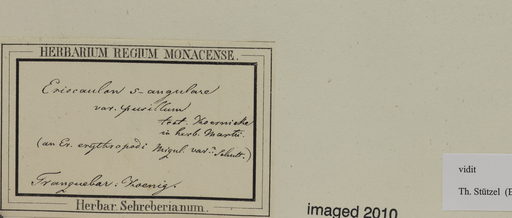 HERBARIUM REGIUM MONACENSE.
Eriocaulon 5-angulare
var. pusillum
test. Koernicke
in herb. Martii.
(an Er. erythropodi Miqul. var.
Tranquebar. Koenig.
Herbar. Schreberianum.
imaged 2010
vidit
Th. Stützel (B